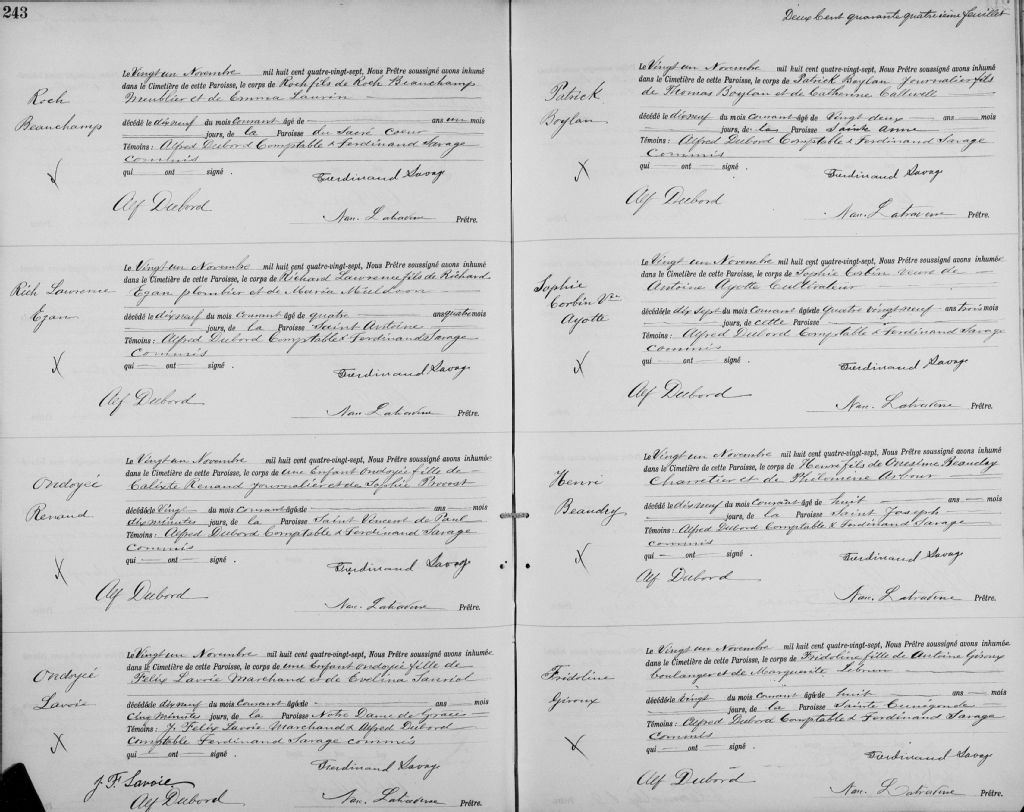 243
Roch
Beauchamp
Le Vingt un Novembre mil huit cent quatre-vingt-sept, Nous Prêtre soussigné avons inhumé
dans le Cimetière de cette Paroisse, le corps de Roch fils de Roch Beauchamp
Meublier et de Emma Laurin
décédé le dix neuf du mois Courant âgé de ans un mois
jours, de la Paroisse du Sacré Coeur
Témoins : Alfred Dubord Comptable & Ferdinand Savage
Commis
qui ont signé . Ferdinand Savage
Alf Dubord
Prêtre.
Rich Lawrence
Egan
Le Vingt un Novembre mil huit cent quatre-vingt-sept, Nous Prêtre soussigné avons inhumé
dans le Cimetière de cette Paroisse, le corps de Richard Lawrence fils de Richard
Egan plombier et de Maria Muldoon
décédé le dix neuf du mois Courant âgé de quatre ans quatre mois
jours, de la Paroisse Saint Antoine
Témoins : Alfred Dubord Comptable & Ferdinand Savage
Commis
qui ont signé . Ferdinand Savage
Alf Dubord
Prêtre.
Ondoyée
Renaud
Le Vingt un Novembre mil huit cent quatre-vingt-sept, Nous Prêtre soussigné avons inhumé
dans le Cimetière de cette Paroisse, le corps de une Enfant ondoyée fille de
Calixte Renaud Journalier et de Sophie Provost
décédée le Vingt du mois Courant âgée de
dix minutes jours, de la Paroisse Saint Vincent de Paul
Témoins : Alfred Dubord Comptable & Ferdinand Savage
Commis
qui ont signé . Ferdinand Savage
Alf Dubord
Prêtre.
Ondoyée
Lavoie
Le Vingt un Novembre mil huit cent quatre-vingt-sept, Nous Prêtre soussigné avons inhumé
dans le Cimetière de cette Paroisse, le corps de une Enfant ondoyée fille de
Félix Lavoie Marchand et de Evelina Sauriol
décédée le dix neuf du mois Courant âgée de ans mois
Cinq Minutes jours, de la Paroisse Notre Dame de Graces
Témoins : J. Félix Lavoie Marchand & Alfred Dubord
Comptable Ferdinand Savage commis
qui ont signé . Ferdinand Savage
J. F. Lavoie
Alf Dubord
Prêtre.
Deux Cent quarante quatrième feuillet
Patrick
Boylan
Le Vingt un Novembre mil huit cent quatre-vingt-sept, Nous Prêtre soussigné avons inhumé
dans le Cimetière de cette Paroisse, le corps de Patrick Boylan Journalier fils
de Thomas Boylan et de Catherine Caldwell
décédé le dix neuf du mois Courant âgé de Vingt deux ans mois
jours, de la Paroisse Sainte Anne
Témoins : Alfred Dubord Comptable & Ferdinand Savage
Commis
qui ont signé . Ferdinand Savage
Alf Dubord
Prêtre.
Sophie
Corbin Vve
Ayotte
Le Vingt un Novembre mil huit cent quatre-vingt-sept, Nous Prêtre soussigné avons inhumé
dans le Cimetière de cette Paroisse, le corps de Sophie Corbin veuve de
Antoine Ayotte Cultivateur
décédée le dix sept du mois Courant âgée de Quatre Vingt neuf ans trois mois
jours, de cette Paroisse
Témoins : Alfred Dubord Comptable & Ferdinand Savage
Commis
qui ont signé . Ferdinand Savage
Alf Dubord
Prêtre.
Henri
Beaudry
Le Vingt un Novembre mil huit cent quatre-vingt-sept, Nous Prêtre soussigné avons inhumé
dans le Cimetière de cette Paroisse, le corps de Henri fils de Onésime Beaudry
Charretier et de Philomène Arbour
décédé le dix neuf du mois Courant âgé de huit ans mois
jours, de la Paroisse Saint Joseph
Témoins : Alfred Dubord Comptable & Ferdinand Savage
Commis
qui ont signé . Ferdinand Savage
Alf Dubord
Prêtre.
Fridoline
Giroux
Le Vingt un Novembre mil huit cent quatre-vingt-sept, Nous Prêtre soussigné avons inhumé
dans le Cimetière de cette Paroisse, le corps de Fridoline fille de Antoine Giroux
boulanger et de Marguerite Lebrun
décédée le Vingt du mois Courant âgée de huit ans mois
jours, de la Paroisse Sainte Cunégonde
Témoins : Alfred Dubord Comptable & Ferdinand Savage
Commis
qui ont signé . Ferdinand Savage
Alf Dubord
Prêtre.